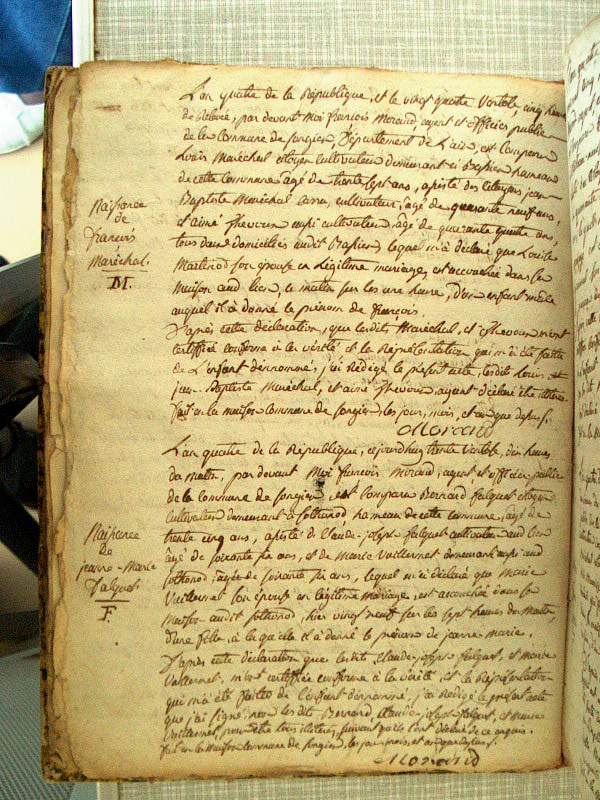 L'an quatre de la République, et le vingt quatre Ventôse, cinq heures
de relevée, par devant Moi françois Morand, agent et officier public
de la Commune de songieu, Département de L'ain, est comparu
Louis Maréchal citoyen cultivateur demeurant à hameau
de cette commune âgé de trente sept ans, assisté des citoyens jean
Baptiste Maréchal cultivateur, âgé de quarante neuf ans,
et aimé Thevenin aussi cultivateur, âgé de quarante quatre ans,
tous deux domiciliés audit lequel m'a déclaré que Louise
Martinod son épouse en légitime mariage, est accouchée dans sa
maison audit lieu, ce matin sur les une heure, d'un enfant mâle
auquel il a donné le prénom de françois.
D'après cette déclaration, que lesdits Maréchal, et m'ont
certifiée conforme à la vérité et la Représentation qui m'a été faite
de L'enfant dénommé, j'ai Rédigé le présent acte, lesdits Louis, et
jean-Baptiste Maréchal, et aimé ayant déclaré être
fait en la maison commune de songieu, les jour, mois, et an que dessus.
Morand
Naissance
de
françois
Maréchal.
M.
L'an quatre de la République, cejourdhuy trente Ventôse, dix heures
du matin, par devant Moi françois Morand, agent, et officier public
de la Commune de songieu, est comparu Bernard falquet citoyen
cultivateur demeurant à sothonod, hameau de cette commune, âgé de
trente cinq ans, assisté de Claude-joseph falquet cultivateur audit lieu
âgé de soixante six ans, et de Marie Vuillermet demeurant aussi audit
sothonod, agée de soixante six ans, lequel m'a déclaré que Marie
Vuillermet son épouse en légitime mariage, est accouchée dans sa
maison audit sothonod, hier vingt neuf sur les sept heures du matin,
d'une fille, à laquelle il a donné le prénom de jeanne-marie.
D'après cette déclaration que lesdits Claude-joseph falquet, et marie
Vuillermet, m'ont certifiée conforme à la vérité, et la Représentation
qui m'a été faite de l'enfant dénommé, j'ai Rédigé le présent acte
que j'ai signé; non lesdits Bernard, Claude-joseph falquet, et marie
Vuillermet, pour être tous illiteres, suivant qu'ils l'ont déclaré de ce enquis.
fait en la Maison Commune de songieu, les jour, mois, et an que dessus.
Morand
Naissance
de
jeanne-Marie
falquet
F.